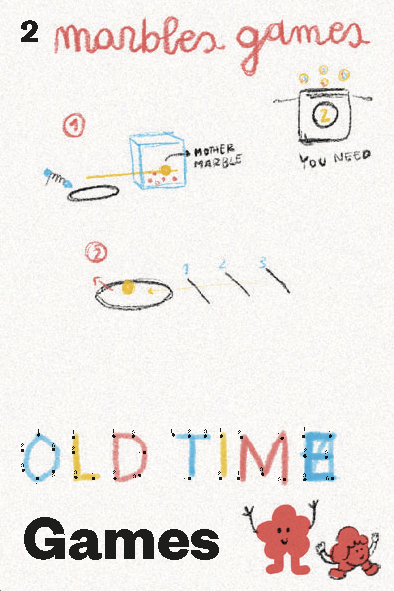 2 marbles games
2
YOU NEED
1
MOTHER
MARBLE
2
1 2 3
OLD TIME
Games